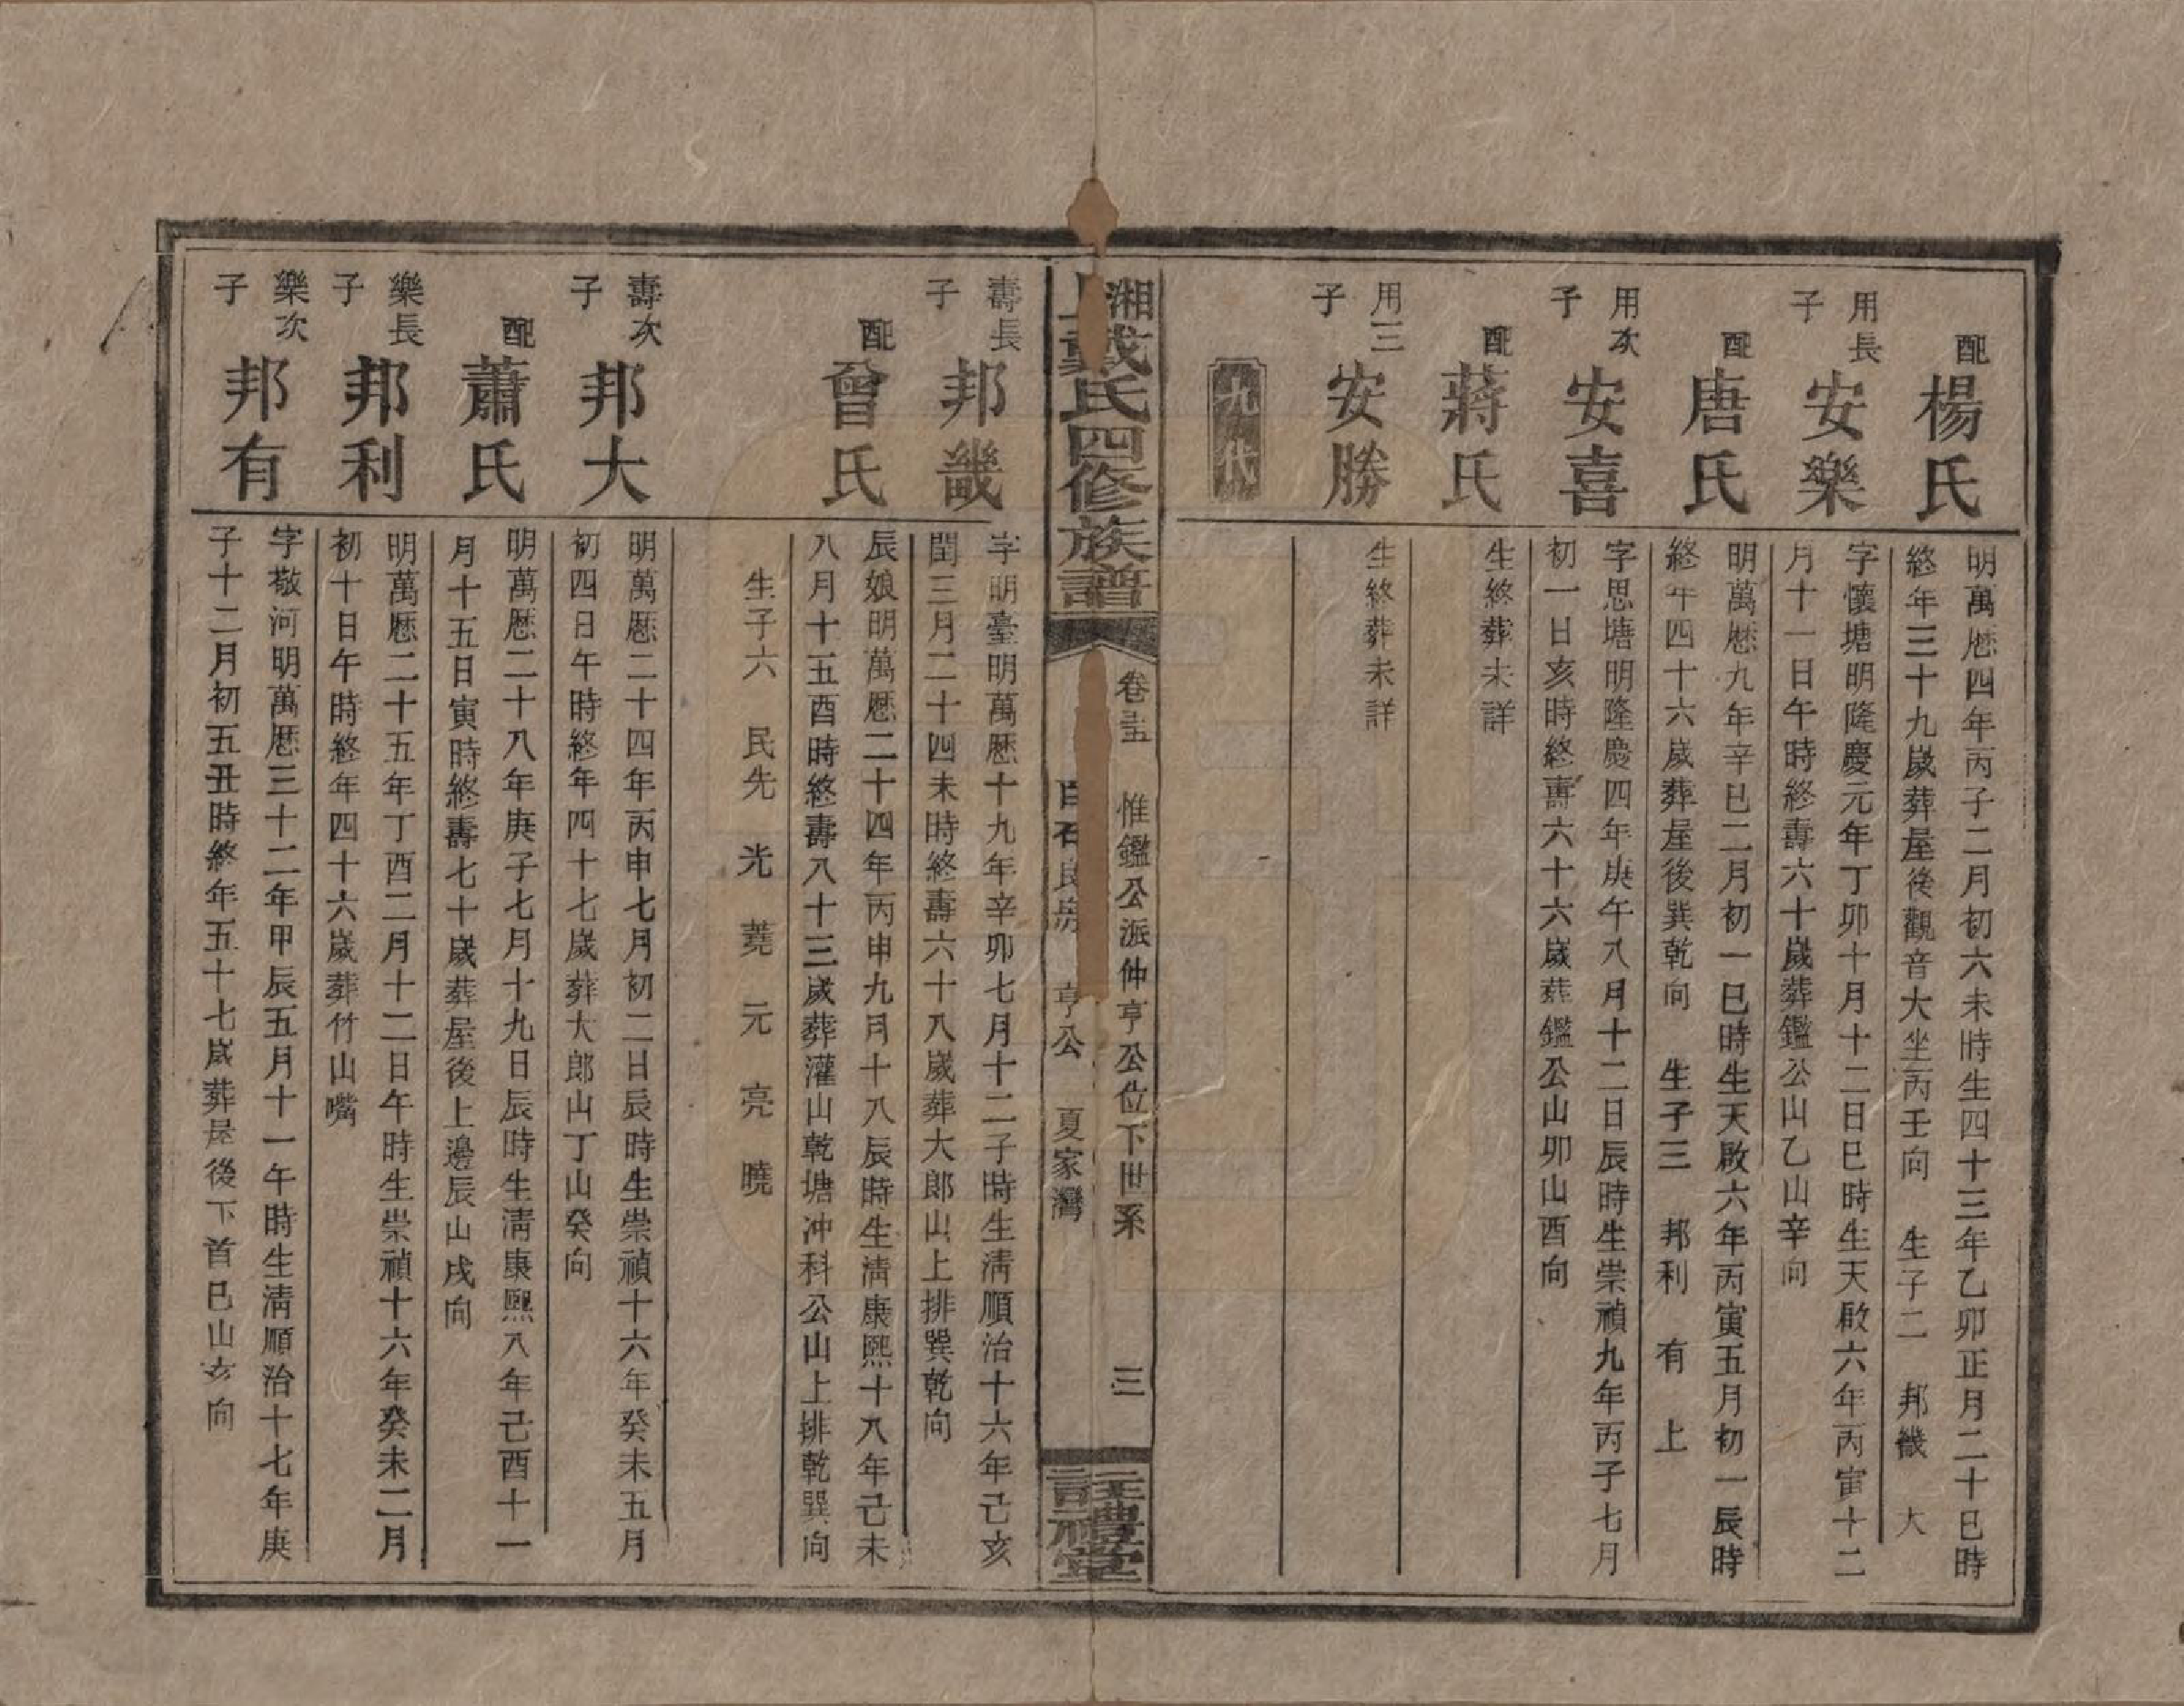 配
楊氏
明萬厯四年丙子二月初六未時生四十三年乙卯正月二十巳時
終年三十九歲葬屋後觀音大坐丙壬向 生子二 邦畿 大
用長子
安樂
字懷塘明隆慶元年丁卯十月十二日巳時生天啟六年丙寅十二
月十一日午時終壽六十歲葬鑑公山乙山辛向
配
唐氏
明萬厯九年辛巳二月初一巳時生天啟六年丙寅五月初一辰時
終年四十六歲葬屋後巽乾向 生子三 邦利 有 上
用次子
安喜
字思塘明隆慶四年庚午八月十二日辰時生崇禎九年丙子七月
初一日亥時終壽六十六歲葬鑑公山卯山酉向
配
蔣氏
生終葬未詳
用三子
安勝
生終葬未詳
九代
湘戴氏四修族譜
卷 惟鑑公派仲亨公位下世系 三
石 房 亨公 夏家灣
註禮堂
壽長子
邦畿
字明臺明萬厯十九年辛卯七月十二子時生清順治十六年己亥
閏三月二十四未時終壽六十八歲葬大郎山上排巽乾向
配
曾氏
辰娘明萬厯二十四年丙申九月十八辰時生清康熙十八年己未
八月十五酉時終壽八十三歲葬灌山乾塘冲科公山上排乾巽向
生子六 民先 光 薨 元 亮 曉
壽次子
邦大
明萬厯二十四年丙申七月初二日辰時生崇禎十六年癸未五月
初四日午時終年四十七歲葬大郎山丁山癸向
配
蕭氏
明萬厯二十八年庚子七月十九日辰時生清康熙八年己酉十一
月十五日寅時終壽七十歲葬屋後上邊辰山戌向
樂長子
邦利
明萬厯二十五年丁酉二月十二日午時生崇禎十六年癸未二月
初十日午時終年四十六歲葬竹山嘴
樂次子
邦有
字敬河明萬厯三十二年甲辰五月十一午時生清順治十七年庚
子十二月初五丑時終年五十七歲葬屋後下首巳山亥向